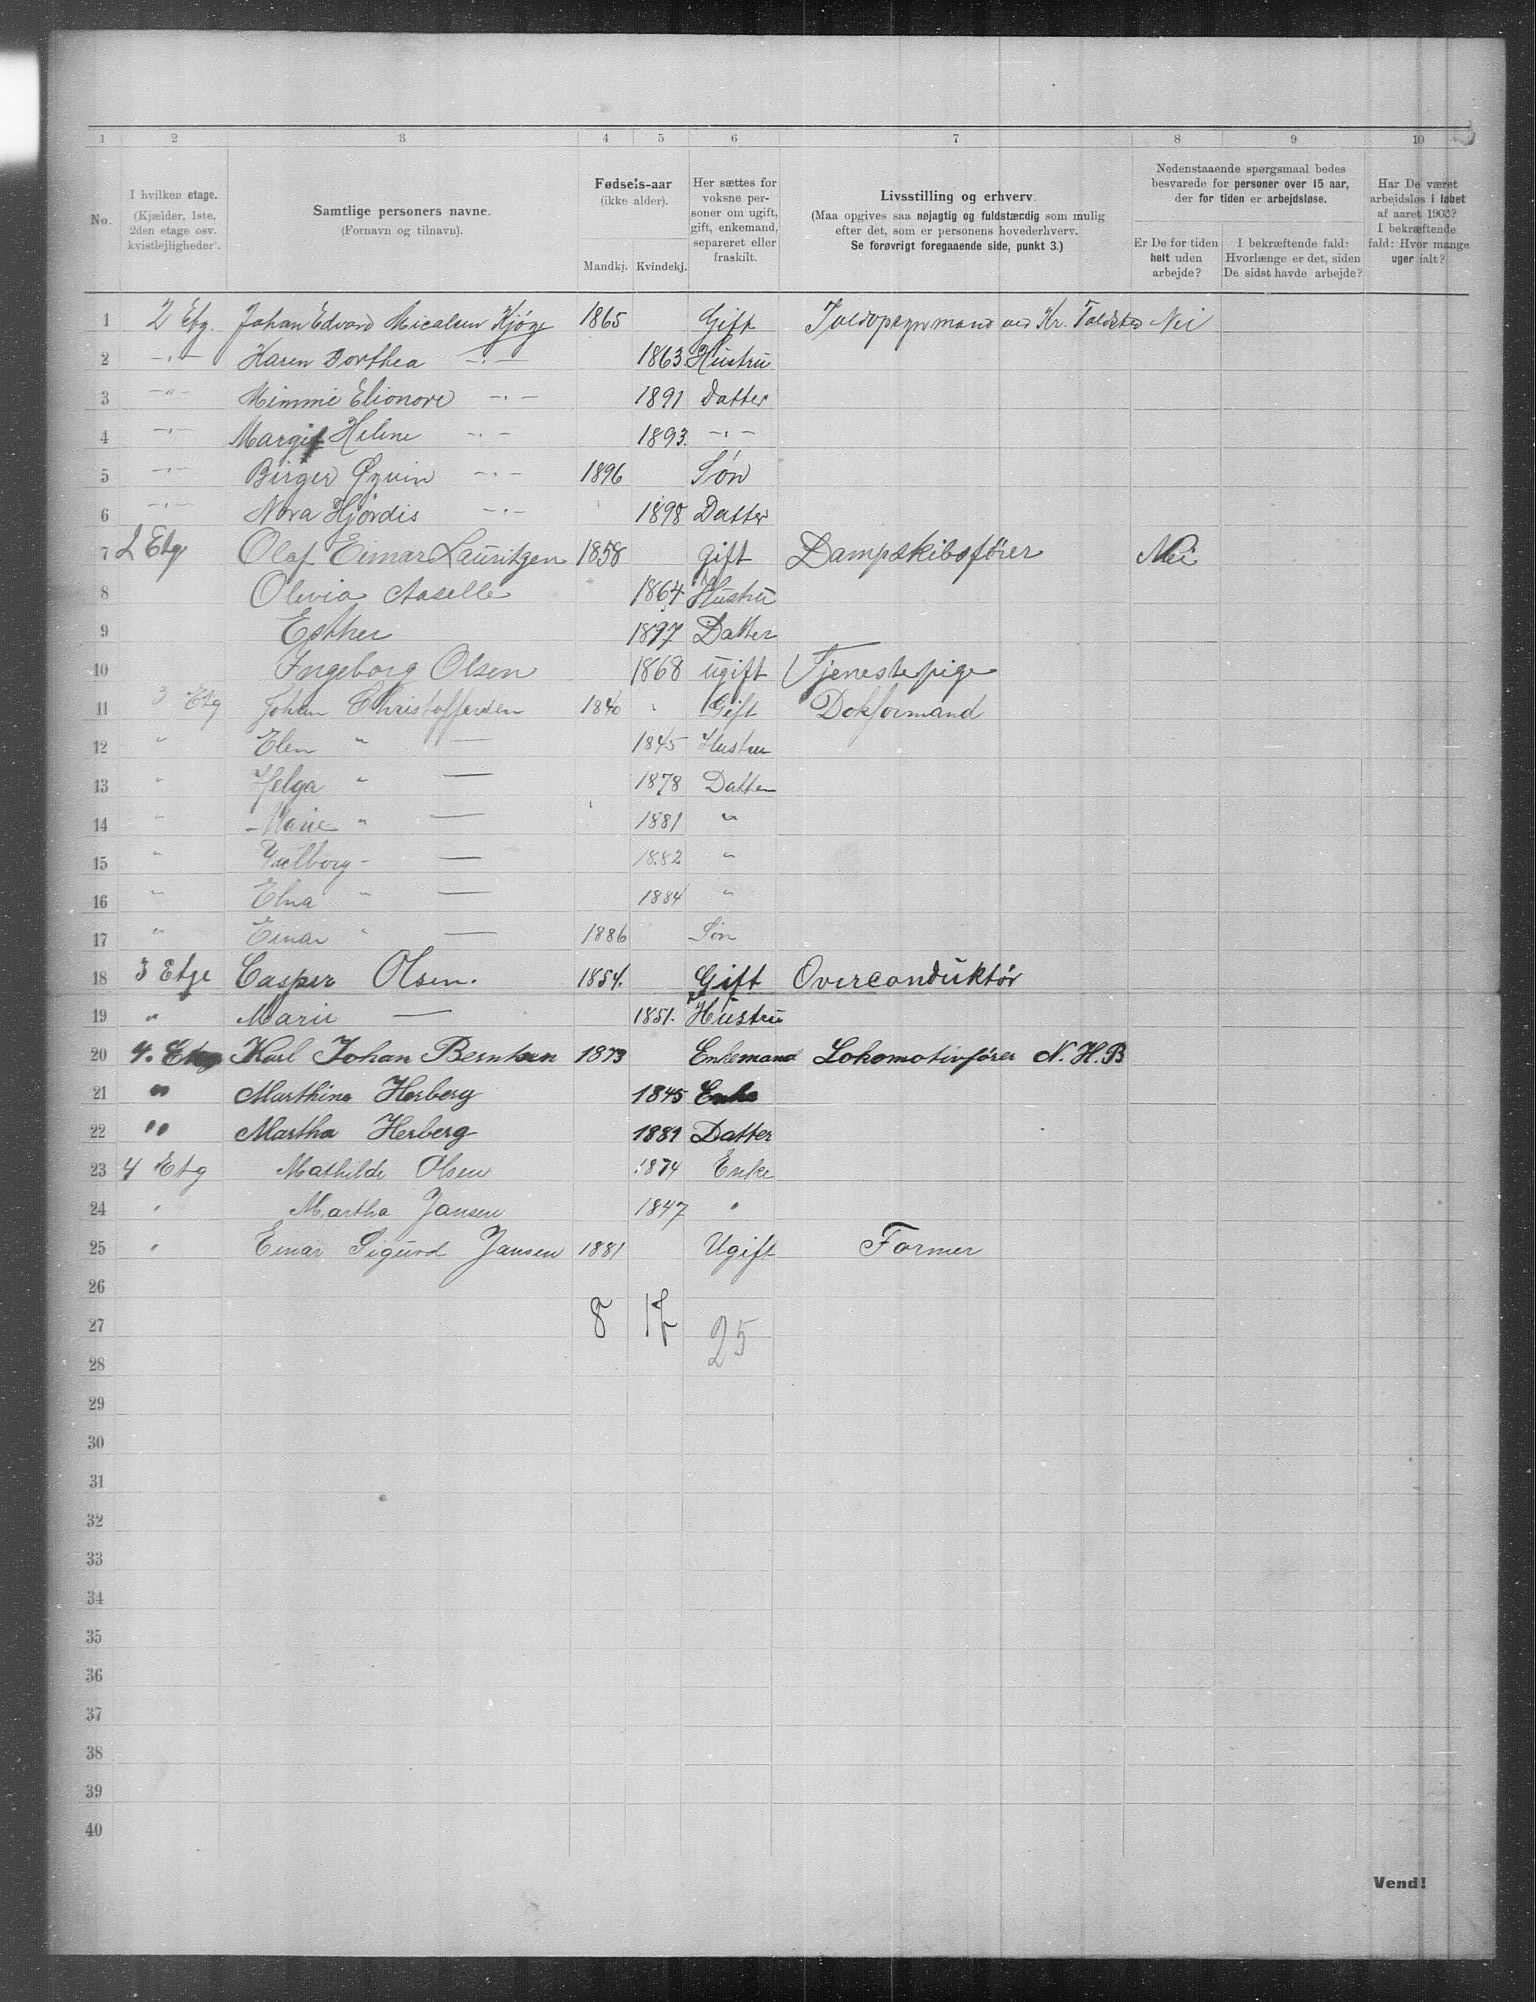 1 2 3 4 5 6 7 8 9 10
No.
I hvilken etage.
(Kjælder, 1ste,
2den etage osv.
kvistlejligheder).
Samtlige personers navne.
(Fornavn og tilnavn).
Fødsels-aar
(ikke alder).
Mandkj. Kvindekj.
Her sættes for
voksne per-
soner om ugift,
gift, enkemand,
separeret eller
fraskilt.
Livsstilling og erhverv.
(Maa opgives saa nøjagtig og fuldstændig som mulig
efter det, som er personens hovederhverv.
Se forøvrigt foregaaende side, punkt 3.)
Nedenstaaende spørgsmaal bedes
besvarede for personer over 15 aar,
der for tiden er arbejdsløse.
Er De for tiden
helt uden
arbejde?
I bekræftende fald:
Hvorlænge er det, siden
De sidst havde arbejde?
Har De været
arbejdsløs i løbet
af aaret 1903?
I bekræftende
fald: Hvor mange
uger ialt?
1 2 Etg. Johan Edvard Micalsen Kjøge 1865 Gift ved Kr. Toldsted Nei
2 -"- Karen Dorthea -"- 1863. Hustru
3 -"- Mimmi Elionore -"- 1891 Datter
4 -"- Margit Helene -"- 1893. -"-
5 -"- Birger Øyvin -"- 1896 Søn
6 -"- Nora Hjørdis -"- 1898 Datter
7 2 Etg Olaf Eimar Lauritzen 1858 gift Dampskibsfører Nei
8 Olivia Aaselle 1864 Hustru
9 Esther 1897 Datter
10 Ingeborg Olsen 1868 ugift Tjenestepige
11 3 Etg Johan Christoffersen 1840 Gift Dokformand
12 " Elen " — 1845 Hustru
13 " Helga " — 1878 Datter
14 " Marie " — 1881 "
15 " — 1882 "
16 " Elna " — 1884 "
17 " Einar " — 1886 Søn
18 3 Etge Casper Olsen. 1854. Gift Overconduktør
19 " Marie — 1851. Hustru
20 4. Etg Karl Johan Berntsen 1873 Enkemand Lokomotivfører N. H. B
21 " Marthine Herberg 1845 Enke
22 " Martha Herberg 1881 Datter
23 4 Etg Mathilde Olsen 1874 Enke
24 " Martha Jansen 1847 "
25 " Einar Sigurd Jansen 1881 Ugift Former
26
27 8 17 25
28
29
30
31
32
33
34
35
36
37
38
39
40
Vend!